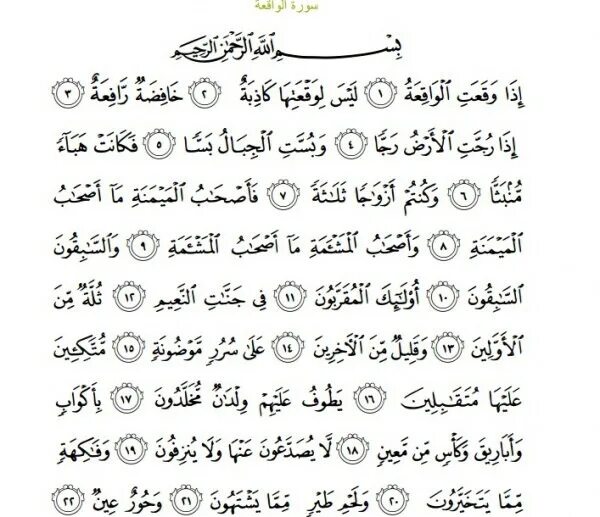 سورة الواقعة
بِسْمِ ٱللَّهِ ٱلرَّحْمَٰنِ ٱلرَّحِيمِ
إِذَا وَقَعَتِ ٱلْوَاقِعَةُ ١ لَيْسَ لِوَقْعَتِهَا كَاذِبَةٌ ٢ خَافِضَةٌ رَّافِعَةٌ ٣
إِذَا رُجَّتِ ٱلْأَرْضُ رَجًّا ٤ وَبُسَّتِ ٱلْجِبَالُ بَسًّا ٥ فَكَانَتْ هَبَآءً
مُّنۢبَثًّا ٦ وَكُنتُمْ أَزْوَٰجًا ثَلَٰثَةً ٧ فَأَصْحَٰبُ ٱلْمَيْمَنَةِ مَآ أَصْحَٰبُ
ٱلْمَيْمَنَةِ ٨ وَأَصْحَٰبُ ٱلْمَشْـَٔمَةِ مَآ أَصْحَٰبُ ٱلْمَشْـَٔمَةِ ٩ وَٱلسَّٰبِقُونَ
ٱلسَّٰبِقُونَ ١٠ أُو۟لَٰٓئِكَ ٱلْمُقَرَّبُونَ ١١ فِى جَنَّٰتِ ٱلنَّعِيمِ ١٢ ثُلَّةٌ مِّنَ
ٱلْأَوَّلِينَ ١٣ وَقَلِيلٌ مِّنَ ٱلْءَاخِرِينَ ١٤ عَلَىٰ سُرُرٍ مَّوْضُونَةٍ ١٥ مُّتَّكِـِٔينَ
عَلَيْهَا مُتَقَٰبِلِينَ ١٦ يَطُوفُ عَلَيْهِمْ وِلْدَٰنٌ مُّخَلَّدُونَ ١٧ بِأَكْوَابٍ
وَأَبَارِيقَ وَكَأْسٍ مِّن مَّعِينٍ ١٨ لَّا يُصَدَّعُونَ عَنْهَا وَلَا يُنزِفُونَ ١٩ وَفَٰكِهَةٍ
مِّمَّا يَتَخَيَّرُونَ ٢٠ وَلَحْمِ طَيْرٍ مِّمَّا يَشْتَهُونَ ٢١ وَحُورٌ عِينٌ ٢٢